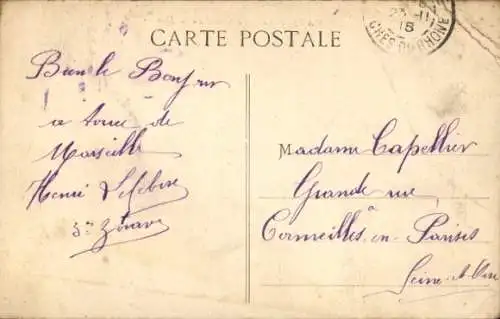 CARTE POSTALE
Bien le Bonjour
a tous de
Marseille
Henri Lefebvre
3e Zouave
Madame Capellier
Grande rue
à
Cormeilles-en-Parisis
Seine et Oise
15
BCHES DU RHONE